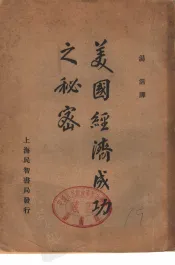 譯
美國經濟成功
之秘密
上海民智書局發行